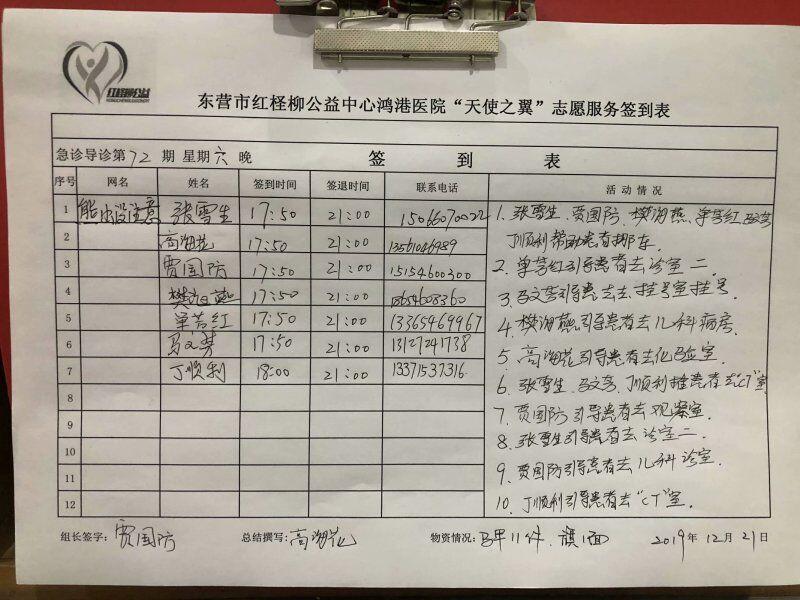 红柽柳公益
东营市红柽柳公益中心鸿港医院“天使之翼”志愿服务签到表
急诊导诊第72期 星期六晚 签到表
序号 网名 姓名 签到时间 签退时间 联系电话 活动情况
1 熊出没注意 张雪生 17:50 21:00 15066070022
2 高海花 17:50 21:00 13561046989
3 贾国防 17:50 21:00 15154600300
4 樊海燕 17:50 21:00 18654608360
5 单芳红 17:50 21:00 13365469967
6 马文芳 17:50 21:00 13127241738
7 丁顺利 18:00 21:00 13371537316
8
9
10
11
12
1. 张雪生、贾国防、樊海燕、单芳红、马文芳
丁顺利帮助患者挪车.
2. 单芳红引导患者去诊室二.
3. 马文芳引导患者去挂号室挂号.
4. 樊海燕引导患者去儿科病房.
5. 高海花引导患者去化验室.
6. 张雪生、马文芳、丁顺利推患者去“CT”室
7. 贾国防引导患者去观察室.
8. 张雪生引导患者去诊室二.
9. 贾国防引导患者去儿科诊室.
10. 丁顺利引导患者去“CT”室.
组长签字: 贾国防 总结撰写: 高海花 物资情况: 马甲11件、旗1面 2019年12月21日